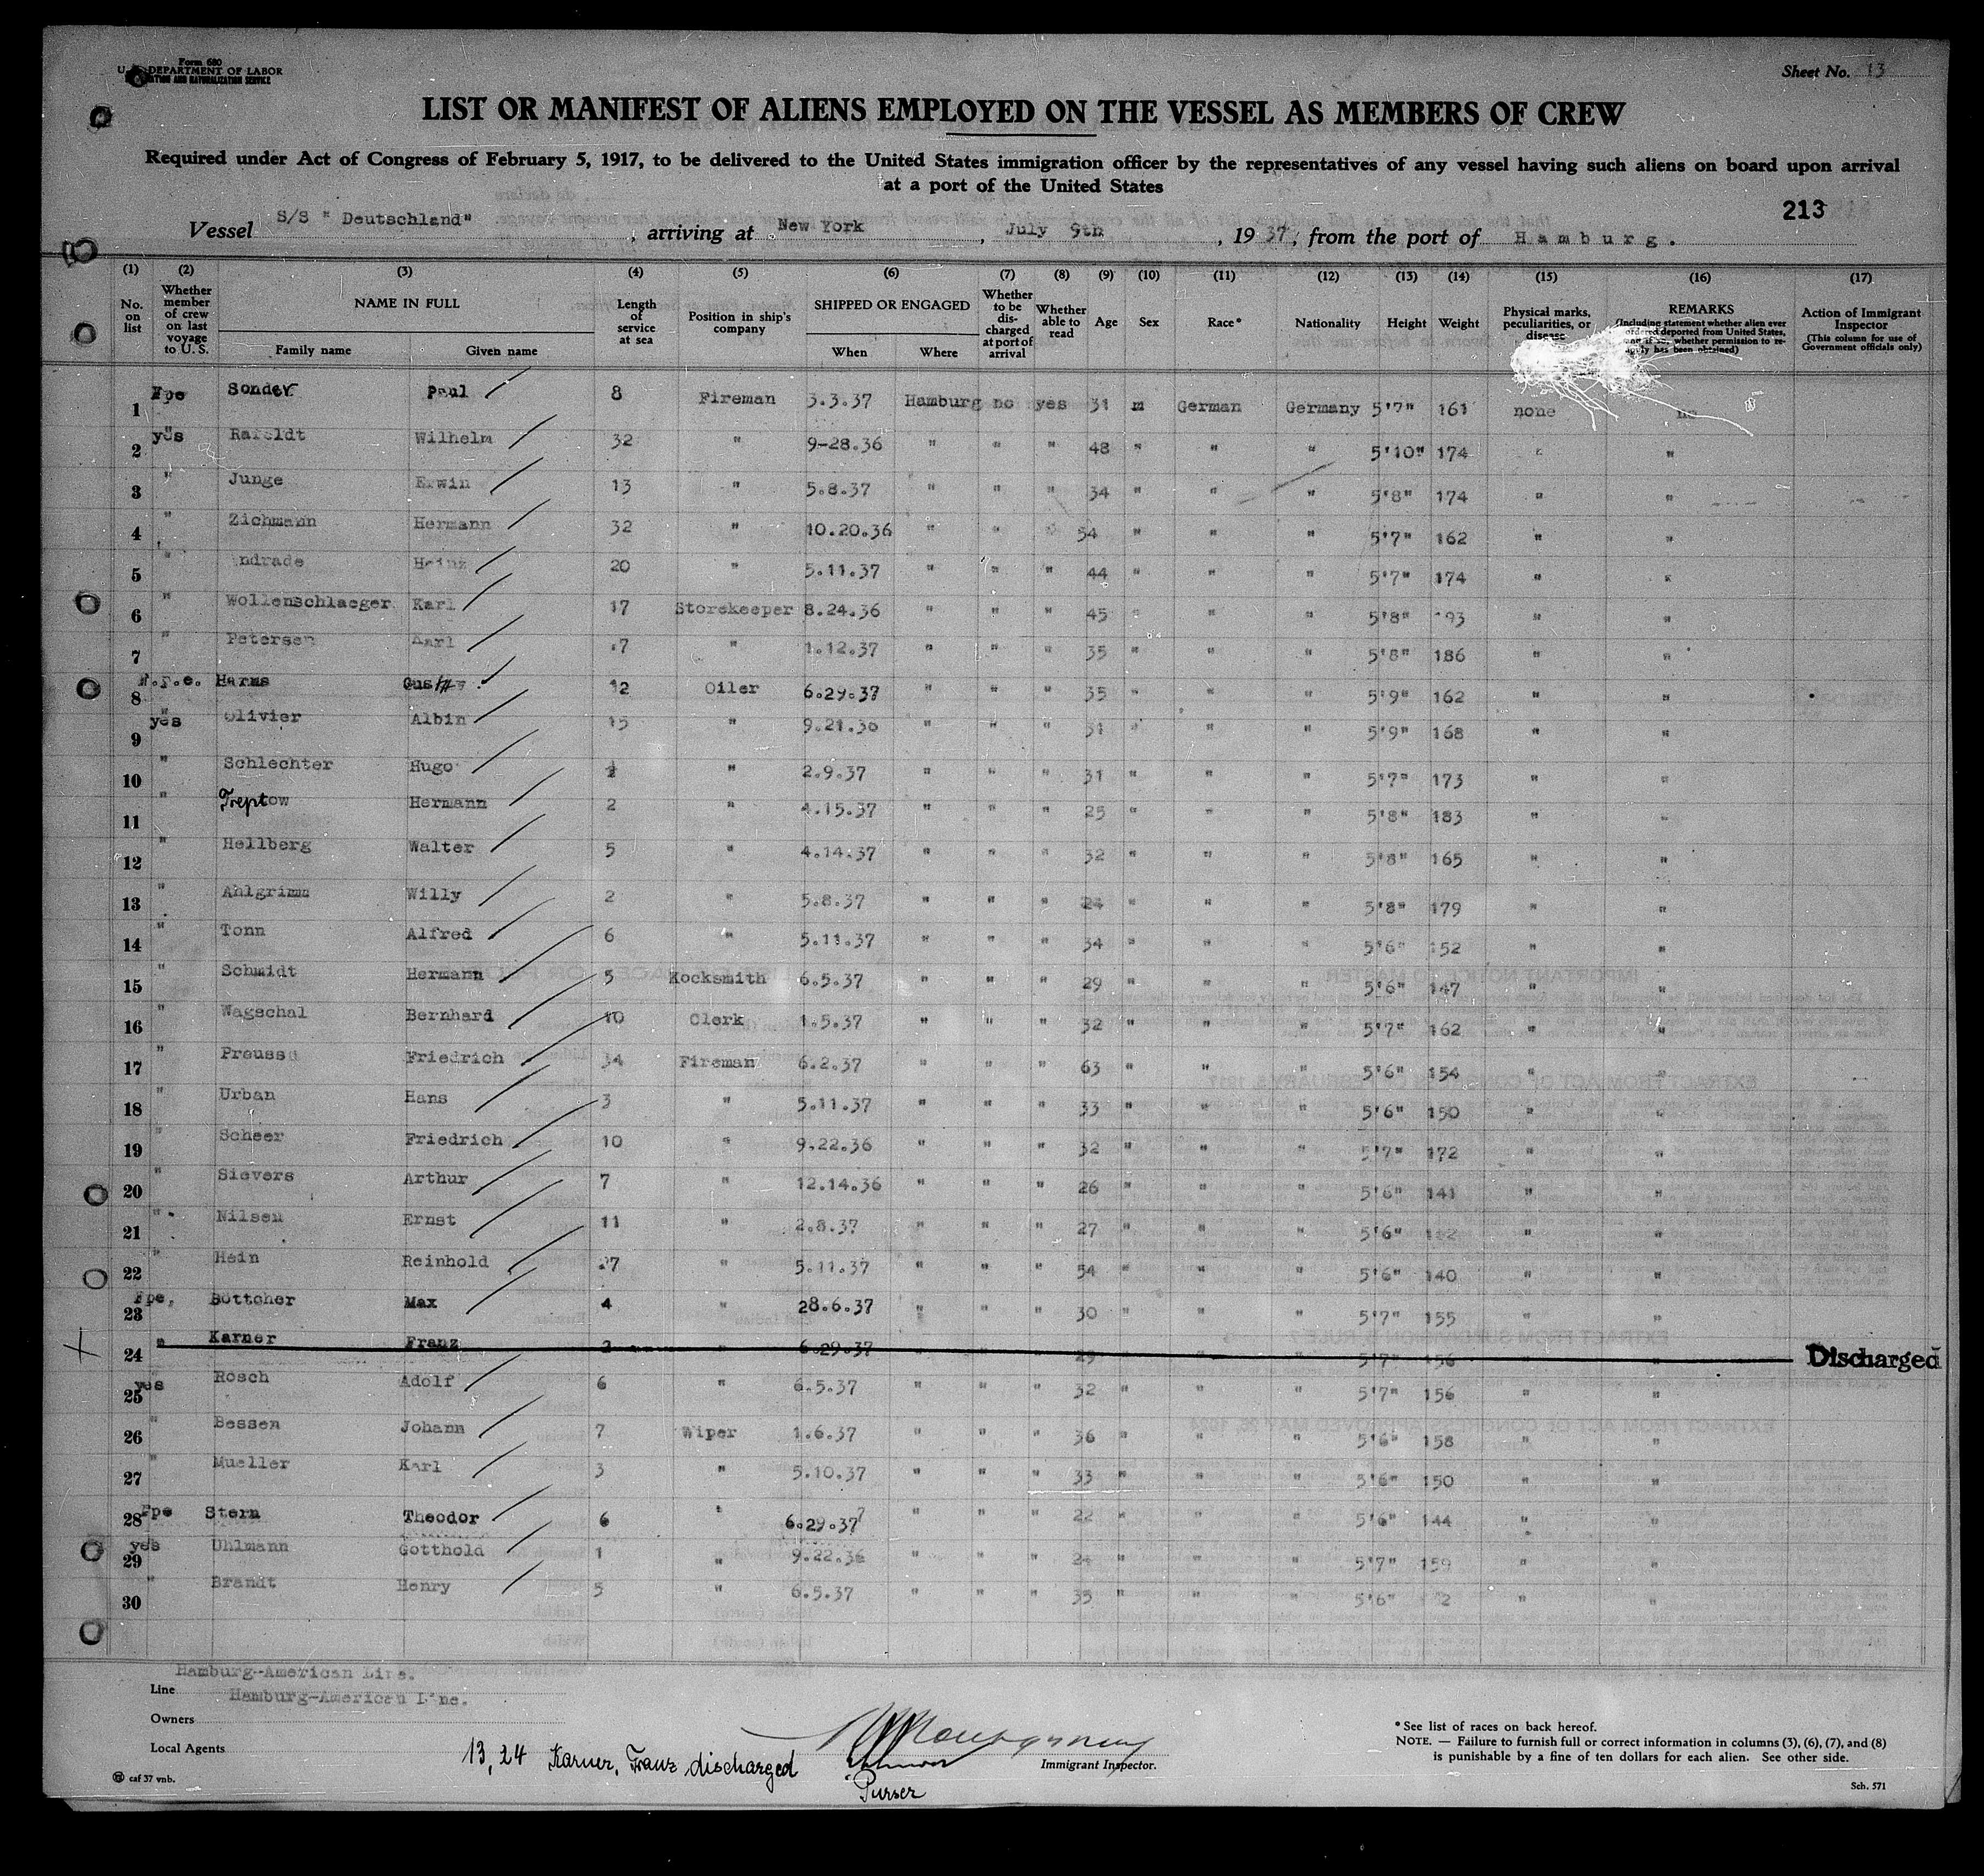 Form 680
U. S. DEPARTMENT OF LABOR
NATURALIZATION SERVICE
Sheet No. 13
LIST OR MANIFEST OF ALIENS EMPLOYED ON THE VESSEL AS MEMBERS OF CREW
Required under Act of Congress of February 5, 1917, to be delivered to the United States immigration officer by the representatives of any vessel having such aliens on board upon arrival
at a port of the United States
213
Vessel S/S " Deutschland" , arriving at New York , July 9th , 19 37, from the port of Hamburg.
(1) (2) (3) (4) (5) (6) (7) (8) (9) (10) (11) (12) (13) (14) (15) (16) (17)
No. on list Whether member of crew on last voyage to U. S. NAME IN FULL Family name Given name Length of service at sea Position in ship's company SHIPPED OR ENGAGED When Where Whether to be discharged at port of arrival Whether able to read Age Sex Race* Nationality Height Weight Physical marks, peculiarities, or disease REMARKS (Including statement whether alien ever ordered deported from United States, whether permission to reapply has been obtained) Action of Immigrant Inspector (This column for use of Government officials only)
1 Sonder Paul 8 Fireman 3.3.37 Hamburg no yes 31 m German Germany 5'7" 161 none no
2 yes Wilhelm 32 " 9-28.36 " " " 48 " " " 5'10" 174 " "
3 " Junge Erwin 13 " 5.8.37 " " " 34 " " " 5'8" 174 " "
4 " Zichmann Hermann 32 " 10.20.36 " " " 54 " " " 5'7" 162 " "
5 " Heinz 20 " 5.11.37 " " " 44 " " " 5'7" 174 " "
6 " Wollenschlaeger Karl 17 Storekeeper 8.24.36 " " " 45 " " " 5'8" "
7 " Petersen 1.12.37 " " " 35 " " " 5'8" 186 " "
8 Harms 12 Oiler 6.29.37 " " " 35 " " " 5'9" 162 " "
9 yes Olivier Albin 15 " 9.21.36 " " " " " " 5'9" 168 " "
10 " Schlechter Hugo " 2.9.37 " " " 31 " " " 5'7" 173 " "
11 " Treptow Hermann 2 " 4.15.37 " " " 25 " " " 5'8" 183 " "
12 " Hellberg Walter 5 " 4.14.37 " " " 32 " " " 5'8" 165 " "
13 " Ahlgrimm Willy 2 " 5.8.37 " " " 24 " " " 5'8" 179 " "
14 " Tonn Alfred 6 " 5.11.37 " " " 34 " " " 5'6" 152 " "
15 " Schmidt Hermann 5 Kocksmith 6.5.37 " " " 29 " " " 5'6" 147 " "
16 " Wagschal Bernhard 10 Clerk 1.5.37 " " " 32 " " " 5'7" 162 " "
17 " Friedrich 34 Fireman 6.2.37 " " " 63 " " " 5'6" 154 " "
18 " Urban Hans 3 " 5.11.37 " " " 33 " " " 5'6" 150 " "
19 " Scheer Friedrich 10 " 9.22.36 " " " 32 " " " 5'7" 172 " "
20 " Sievers Arthur 7 " 12.14.36 " " " 26 " " " 5'6" 141 " "
21 " Nilsen Ernst 11 " 2.8.37 " " " 27 " " " 5'6" " "
22 " Hein Reinhold " 5.11.37 " " " 54 " " " 5'6" 140 " "
23 Böttcher Max 4 " 28.6.37 " " " 30 " " " 5'7" 155 " "
24 " Karner Franz 2 " 6.29.37 " " " " " " 5'7" 156 " " Discharged
25 yes Rosch Adolf 6 " 6.5.37 " " " 32 " " " 5'7" 156 " "
26 " Bessen Johann 7 Wiper 1.6.37 " " " 36 " " " 5'6" 158 " "
27 " Mueller Karl 3 " 5.10.37 " " " 33 " " " 5'6" 150 " "
28 Stern Theodor 6 " 6.29.37 " " " 22 " " " 5'6" 144 " "
29 yes Uhlmann Gotthold 1 " 9.22.36 " " " 24 " " " 5'7" 159 " "
30 " Brandt Henry 5 " 6.5.37 " " " 35 " " " 5'6" " "
Hamburg-American Line.
Line Hamburg-American Line.
Owners
Local Agents
13, 24 Karner, Franz discharged
Purser
Immigrant Inspector.
*See list of races on back hereof.
NOTE. — Failure to furnish full or correct information in columns (3), (6), (7), and (8)
is punishable by a fine of ten dollars for each alien. See other side.
caf 37 vnb.
Sch. 571